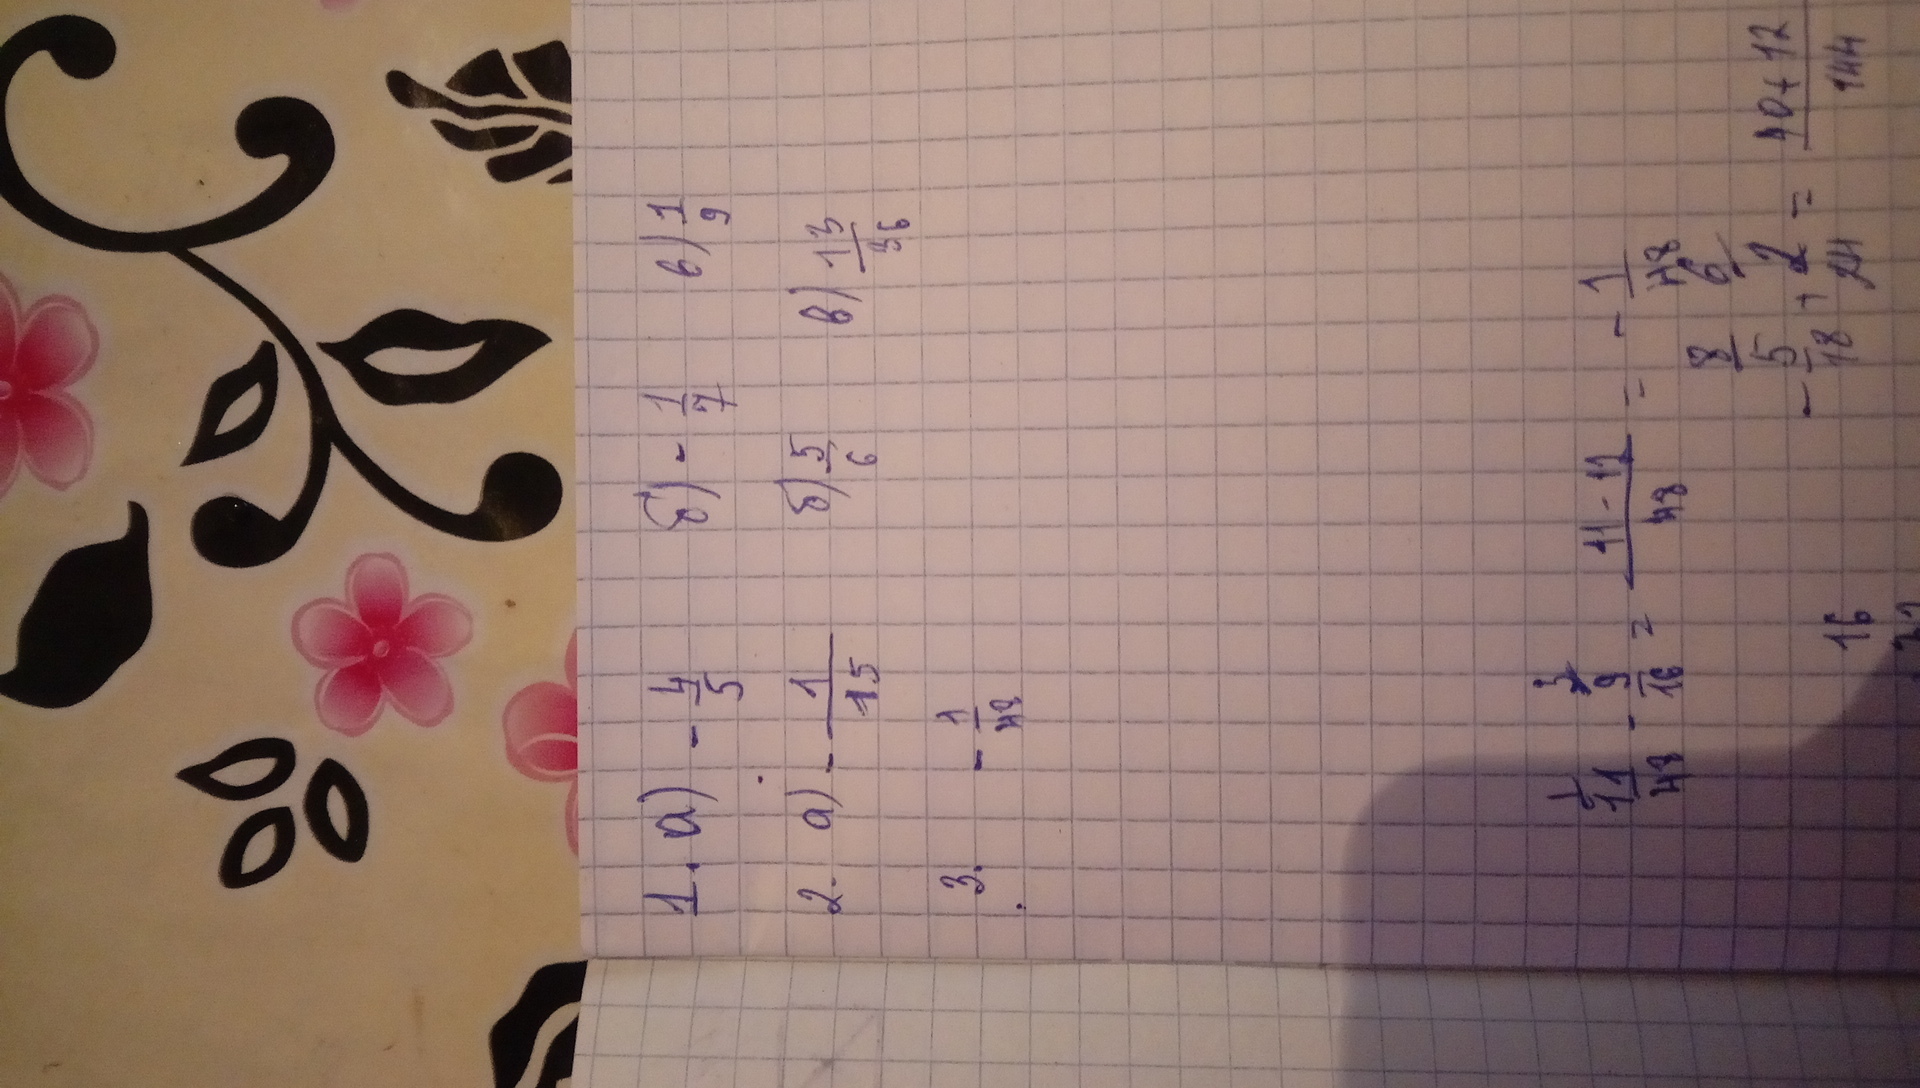 1. а) - 4/5 б) - 1/7 в) 1/9
2. а) - 1/15 б) 5/6 в) 13/36
3. - 1/48
11/48 - 9/16 = 11 - 12/48 = - 1/48
8 6
- 5/18 + 2/24 = 40 + 12/144
16